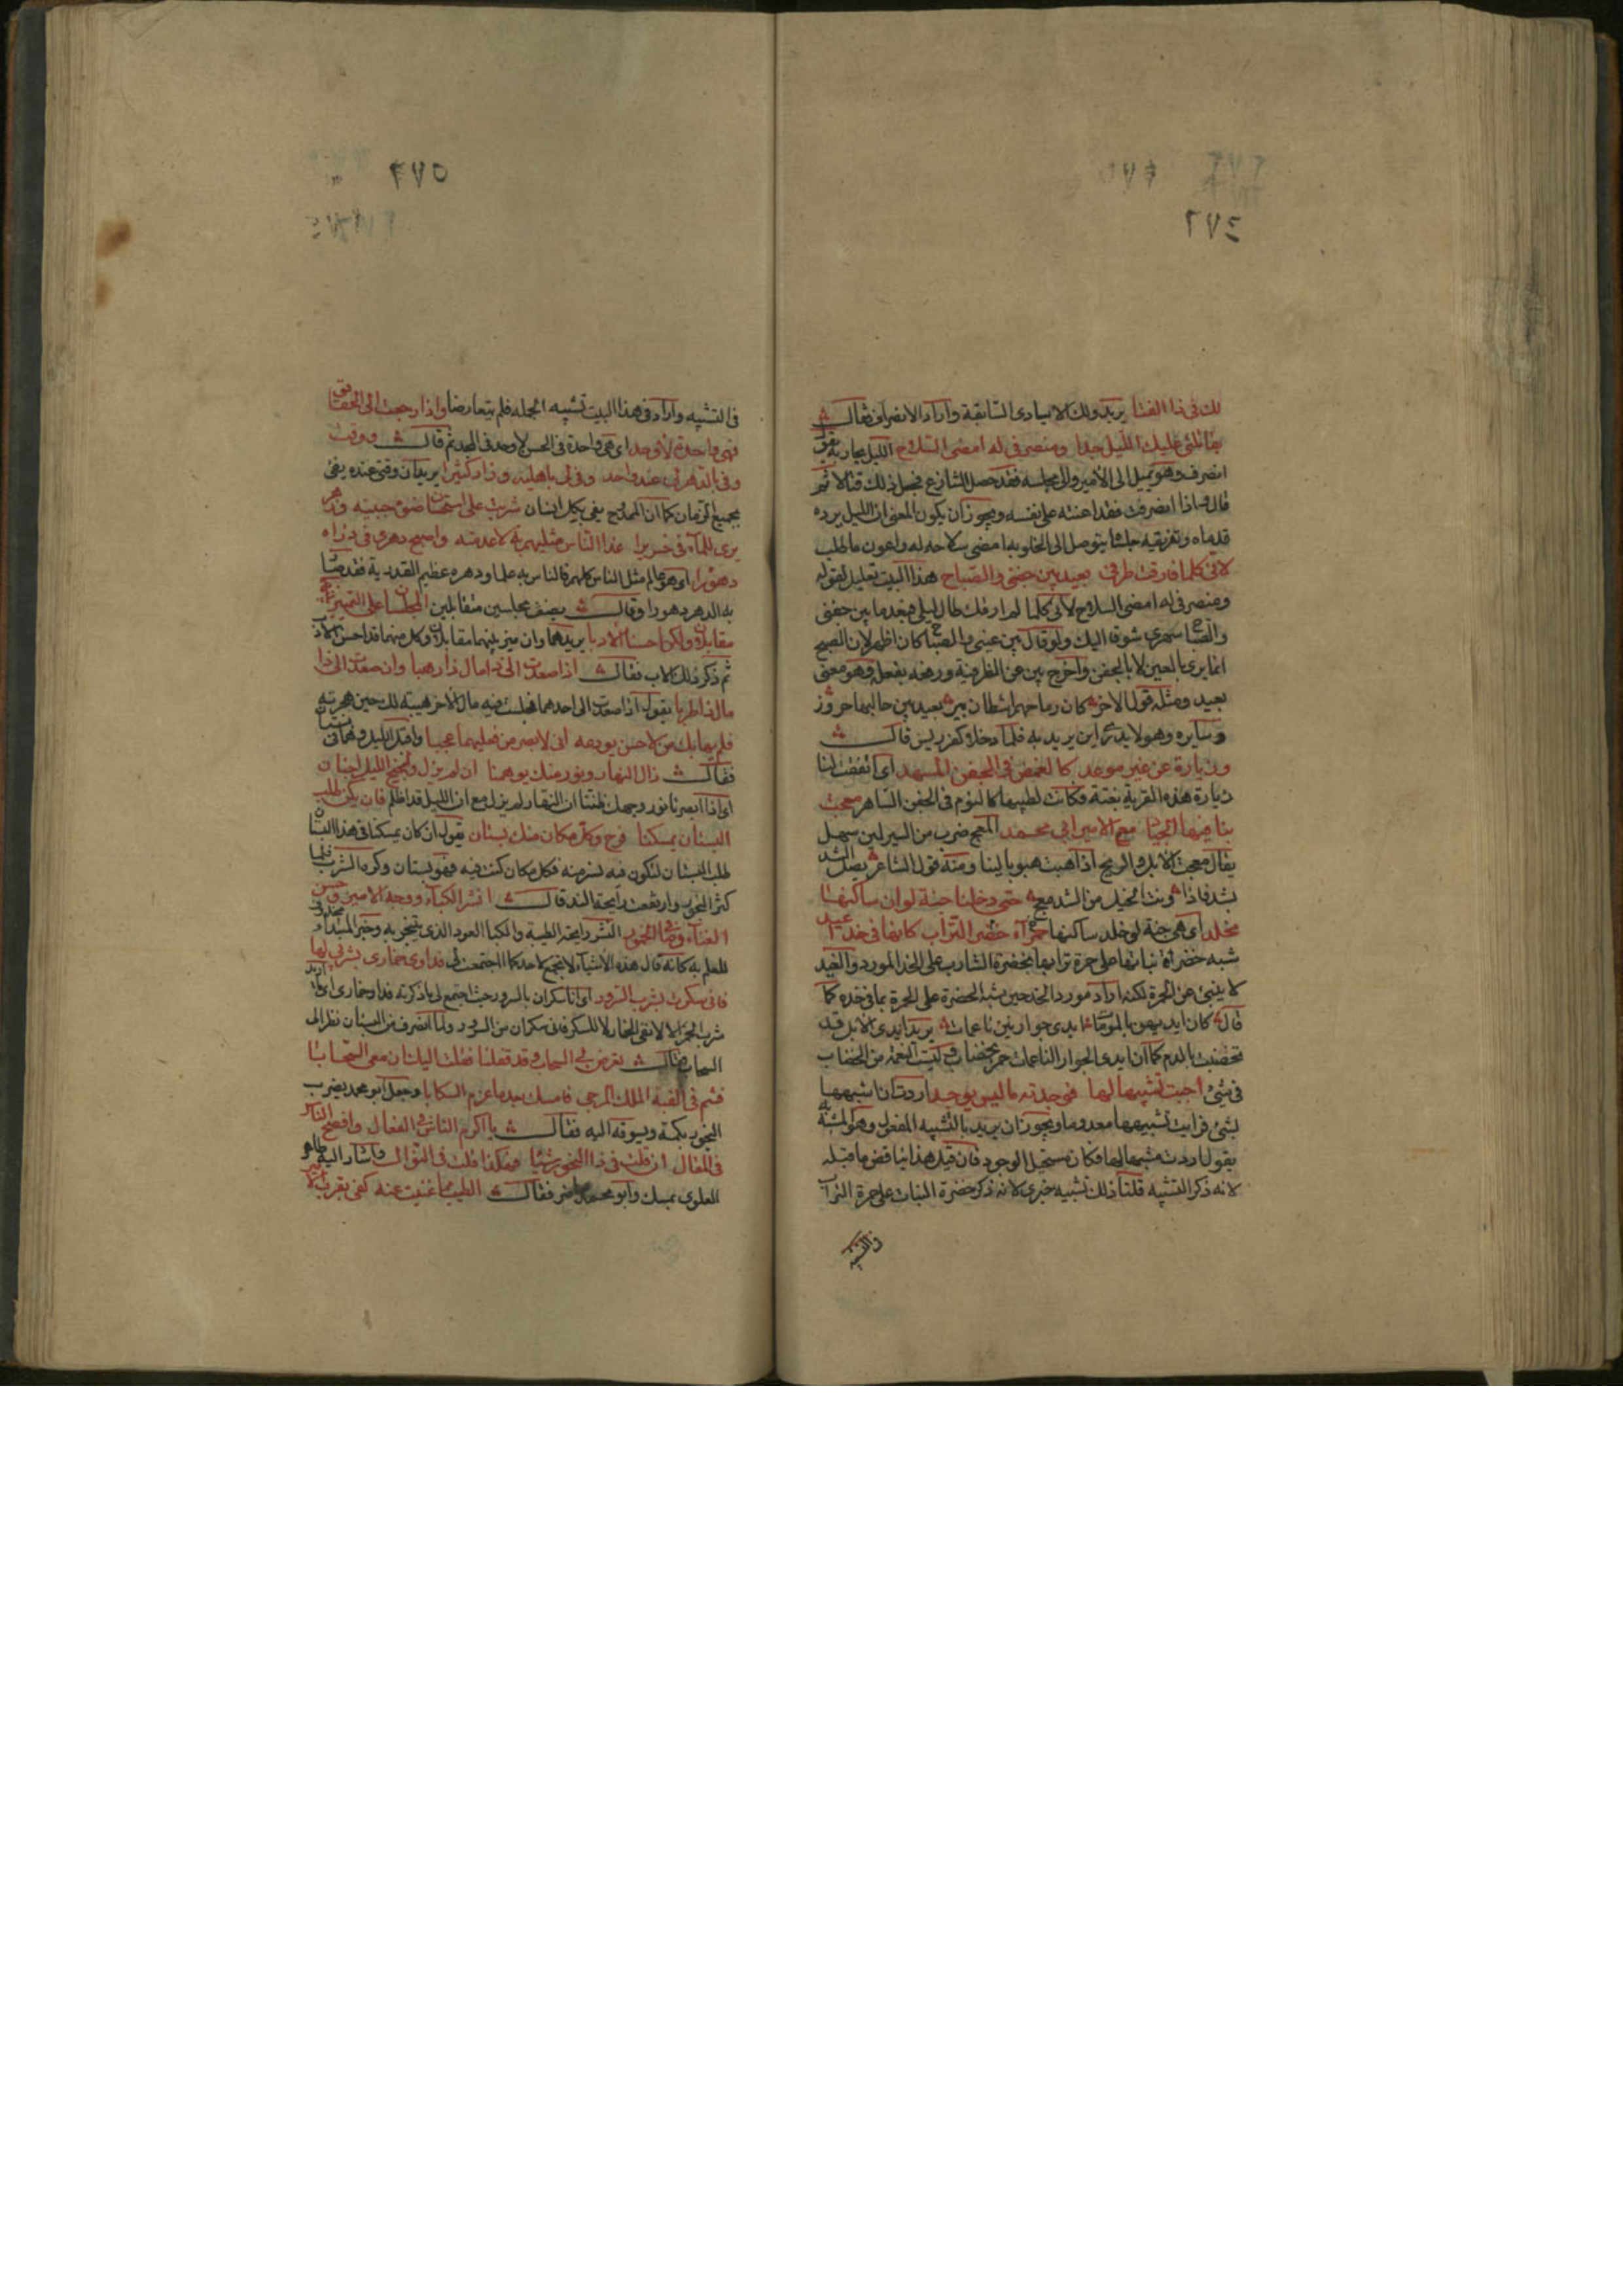 ٢٧٤
لك فى ذا الفتا يريد ولك الايادى السابقة واراد الانصراف فقال
يقاتلنى عليك الليل جدا ومنصرفى له امضى السلاح الليل يحاربه يقول
انصرف وهو يميل الى الامير والى مجلسه فقد حصل التنازع فجعل ذلك قتالا ثم
قال واذا انصرفت فقد اعنته على نفسه ويجوز ان يكون المعنى ان الليل يرده
قدماه وتفريقه جلسا يتوصل الى الخلوبه امضى سلاحه له واعون ما طلب
لانى كلما فارقت طرفى بعيد بين جفنى والصباح هذا البيت تعليل لقوله
ومنصرفى له امضى السلاح لانى كلما لم ارك طال ليلى فبعد ما بين جفنى
والصباح سهرى شوقا اليك ولو قال بين عينى والصباح كان اظهر لان الصبح
انما يرى بالعين لا بالجفن واخرج بين عن الظرفية ورفعه بفعله وهو معنى
بعيد ومثله قول الاخر كان رماحهم اشطان بئر بعيد بين جاليها جرور
وسايره وهو لا يدرى اين يريد به فلما دخل كفرزنس قال
وزيارة عن غير موعد كالغمض فى الجفن المسهد اى اتفقت لنا
زيارة هذه القرية بغتة وكانت لطيبها كالنوم فى الجفن الساهر معجت
بنا فيها الجياد مع الامير ابى محمد المعج ضرب من السير لين سهل
يقال معجت الابل والريح اذا هبت هبوبا لينا ومنه قول الشاعر يصل الشد
بشد فاذا ونت الخيل من الشد معج حتى دخلنا جنة لو ان ساكنها
مخلد اى هى جنة لو خلد ساكنها خضراء حمراء التراب كانها فى خد اغيد
شبه خضرة نباتها على حمرة ترابها بخضرة الشارب على الخد المورد والغيد
لا ينبئ عن الحمرة لكنه اراد مورد الخد حين شبه الخضرة على الحمرة بما فى خده كما
قال كان ايديهن بالموماة ايدى جوار بتن ناعمات يريد ايدى الابل قد
تخضبت بالدم كما ان ايدى الجوار الناعمات حمر بخضاب وليست النعمة من الخضاب
فى شئ احببت تشبيها لها فوجدته ما ليس يوجد اردت ان اشبهها
بشئ فرايت تشبيهها معدوما ويجوز ان يريد بالتشبيه المفعول وهو المشبه به
يقول اردت مشبها لها فكان مستحيل الوجود فان قيل هذا يناقض ما قبله
لانه ذكر التشبيه قلنا ذلك تشبيه جزى لانه ذكر خضرة النبات على حمرة التراب
والتشبيه
٢٧٥
فى التشبيه واراد فى هذا البيت تشبيه الجملة فلم يتعارضا واذا رجعت الى الحقائق
فهى واحدة لاوحد اى هى واحدة فى الحسن لاوحد فى المجد ثم قال ووقت
وفى بالدهر لى عند واحد وفى لى باهليه وزاد كثيرا يريد ان وقتى عنده يفى
بجميع الزمان كما ان الممدوح يفى بكل انسان شربت على استحسان ضوء جبينه وزهر
يرى للماء فيه خريرا غدا الناس مثليهم به لا عدمته واصبح دهرى فى ذراه
دهورا اى هو عالم مثل الناس كلهم فالناس به عالمان ودهره عظيم القدر به فقد صار
به الدهر دهورا وقال يصف مجلسين متقابلين المجلسان على التمييز بينهما
مقابلان ولكن احسنا الادبا يريد هما وان ميز بينهما مقابلان وكل منهما قد احسن الادب
ثم ذكر ذلك الادب فقال اذا صعدت الى ذا مال ذا رهبا وان صعدت الى ذا
مال ذا طربا يقول اذا صعدت الى احدهما فجلست فيه مال الاخر هيبة لك حين هجرته
فلم يهابك من لا حس يردعه انى لابصر من فعليهما عجبا واقبل الليل وهما فى بستان
فقال زال النهار ونور منك يوهمنا ان لم يزل ولجنح الليل اجنان
اى اذا ابصرنا نور وجهك ظننا ان النهار لم يزل مع ان الليل قد اظلم فان يكن طلب
البستان يمسكنا فرح وكل مكان منك بستان يقول ان كان يمسكنا فى هذا البستان
طلب البستان لنكون فيه لنزهنه فكل مكان كنت فيه فهو بستان وكره الشرب فلما
كثر البخور وارتفعت رايحة الند قال انشر الكباء ووجه الامير وحسن
الغناء وصافى الخمور النشر رايحة الطيبة والكبا العود الذى يتبخر به وخبر المبتداء محذوف
للعلم به كانه قال هذه الاشياء لا تجتمع لاحد كما اجتمعت لى فداو خمارى بشربى لها
فانى سكرت بشرب السرور اى انا سكران بالسرور حيث اجتمع لى ما ذكرته فداو خمارى اريد
شرب الخمر الا لانفى الخمار لا للسكر فانى سكران من السرور ولما انصرف من البستان نظر الى
السحاب فقال تعرض لى السحاب وقد قفلنا فقلت اليك ان معى السحابا
فشم فى القبة الملك المرجى فامسك بعد ما عزم انسكابا وجعل ابو محمد يضرب
البخور بكمه ويسوقه اليه فقال يا اكرم الناس فى الفعال وافصح الناس
فى المقال ان قلت فى ذا البخور شيا فهكذا قلت فى النوال واشار اليه طاهر
العلوى بمسك وابو محمد حاضر فقال الطيب مما غنيت عنه كفى بقرب الامير